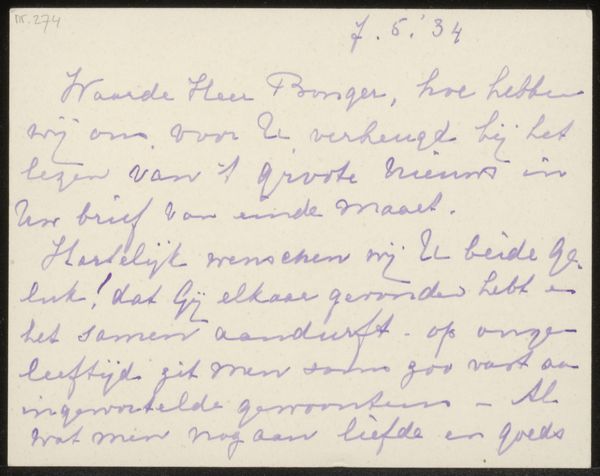 nr. 274
7.5.'34
Waarde Heer Bonger, hoe hebben
wij ons voor U verheugd bij het
lezen van 't groote nieuws in
Uw brief van einde Maart.
Hartelijk wenschen wij U beide ge-
luk! dat Gij elkaar gevonden hebt en
het samen aandurft - op onze
leeftijd zit men soms zoo vast aan
ingewortelde gewoonten - Al
wat men nog aan liefde en goeds